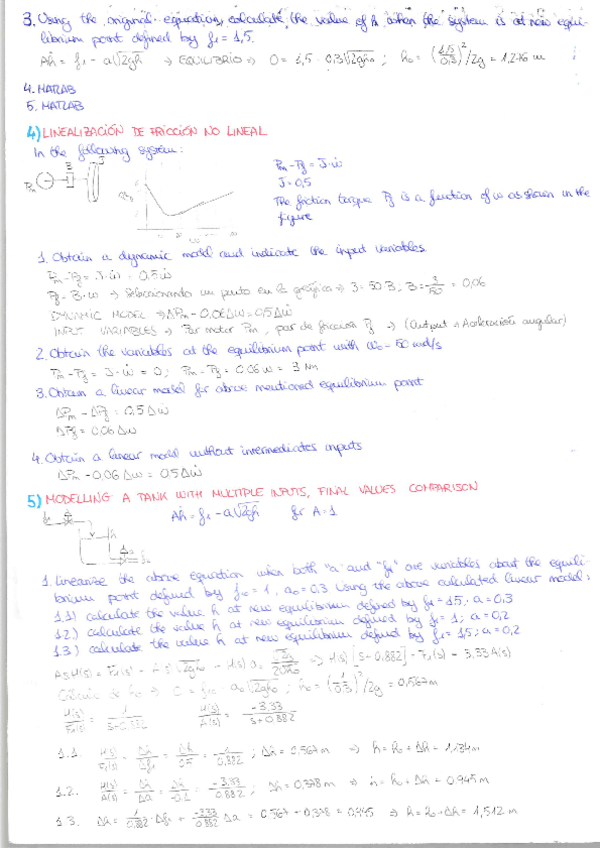 3. Using the original equation, calculate the value of h when the system is at new equi-
librium point defined by f₁ = 1,5.
Aḣ = f₁ - a√2gh → EQUILIBRIO → 0 = 1,5 - 0,3√2gh₀ ; h₀ = (1,5/0,3)²/2g = 1,276 m
4. MATLAB
5. MATLAB
4) LINEALIZACIÓN DE FRICCIÓN NO LINEAL
In the following system:
Pm - Pf = J·ẇ
J = 0,5
The friction torque Pf is a function of w as shown in the
figure
1. Obtain a dynamic model and indicate the input variables
Pm - Pf = J·ẇ = 0,5ẇ
Pf = B·w → Seleccionando un punto en la gráfica → 3 = 50B ; B = 3/50 = 0,06
DYNAMIC MODEL → ΔPm - 0,06Δw = 0,5Δẇ
INPUT VARIABLES → Par motor Pm, par de fricción Pf → (Output → Aceleración angular)
2. Obtain the variables at the equilibrium point with w₀ = 50 rad/s
Pm - Pf = J·ẇ = 0 ; Pm = Pf = 0,06w = 3 Nm
3. Obtain a linear model for above mentioned equilibrium point
ΔPm - ΔPf = 0,5Δẇ
ΔPf = 0,06Δw
4. Obtain a linear model without intermediates inputs
ΔPm - 0,06Δw = 0,5Δẇ
5) MODELLING A TANK WITH MULTIPLE INPUTS, FINAL VALUES COMPARISON
Aḣ = f₁ - a√2gh for A = 1
1. Linearise the above equation when both "a" and "f₁" are variables about the equili-
brium point defined by f₁₀ = 1, a₀ = 0,3. Using the above calculated linear model:
1.1) calculate the value h at new equilibrium defined by f₁ = 1,5 ; a = 0,3
1.2) calculate the value h at new equilibrium defined by f₁ = 1 ; a = 0,2
1.3) calculate the value h at new equilibrium defined by f₁ = 1,5 ; a = 0,2
→ H(s)[s + 0,882] = F₁(s) - 3,33A(s)
h₀ = (1/0,3)²/2g = 0,567m
H(s)/F₁(s) = 1/(s+0,882) H(s)/A(s) = -3,33/(s+0,882)
1.1. H(s)/F₁(s) = Δh/Δf₁ = Δh/0,5 = 1/0,882 ; Δh = 0,567m → h = h₀ + Δh = 1,134m
1.2. H(s)/A(s) = Δh/Δa = Δh/-0,1 = -3,33/0,882 ; Δh = 0,378m → h = h₀ + Δh = 0,945m
1.3. Δh = 1/0,882 · Δf₁ + -3,33/0,882 Δa = 0,567 + 0,378 = 0,945 → h = h₀ + Δh = 1,512 m